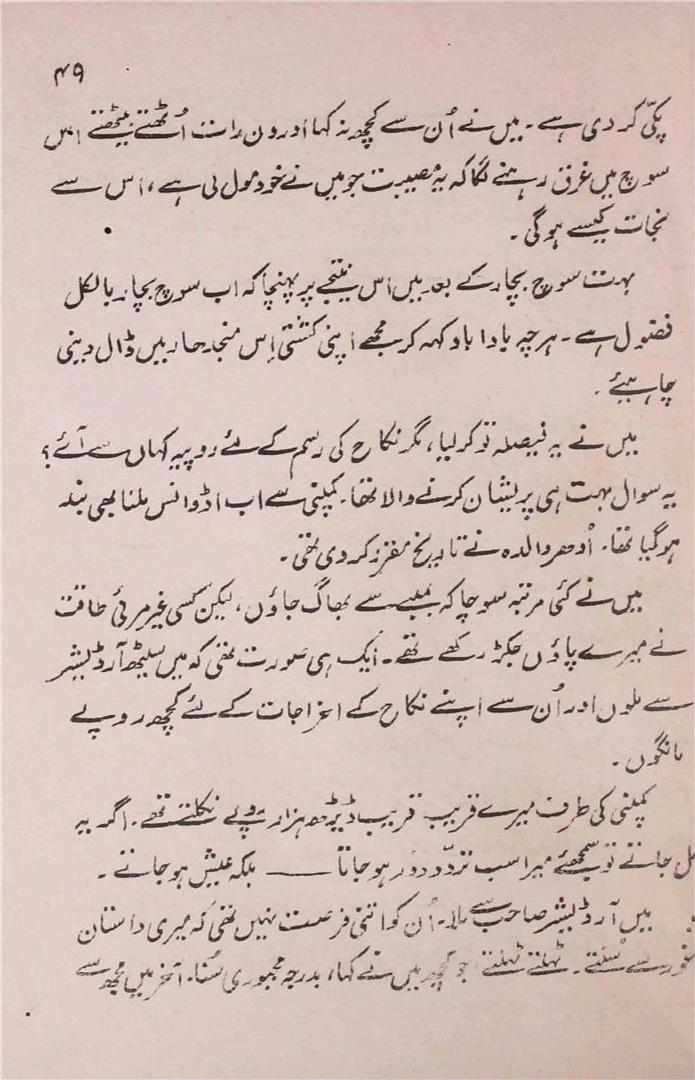 ۴۹
پکّی کر دی ہے۔ میں نے اُن سے کچھ نہ کہا اور دن رات اُٹھتے بیٹھتے اس
سوچ میں غرق رہنے لگا کہ یہ مصیبت جو میں نے خود مول لی ہے، اس سے
نجات کیسے ہو گی۔
بہت سوچ بچار کے بعد میں اس نتیجے پر پہنچا کہ اب سوچ بچار بالکل
فضول ہے۔ ہرچہ بادا باد کہہ کر مجھے اپنی کشتی اِس منجدھار میں ڈال دینی
چاہیئے۔
میں نے یہ فیصلہ تو کر لیا، مگر نکاح کی رسم کے لئے روپیہ کہاں سے آئے؟
یہ سوال بہت ہی پریشان کرنے والا تھا۔ کمپنی سے اب اڈوانس ملنا بھی بند
ہو گیا تھا۔ اُدھر والدہ نے تاریخ مقرر کر دی تھی۔
میں نے کئی مرتبہ سوچا کہ بمبے سے بھاگ جاؤں، لیکن کسی غیر مرئی طاقت
نے میرے پاؤں جکڑ رکھے تھے۔ ایک ہی صورت تھی کہ میں سیٹھ آرڈیشر
سے ملوں اور اُن سے اپنے نکاح کے اخراجات کے لئے کچھ روپے
مانگوں۔
کمپنی کی طرف میرے قریب قریب ڈیڑھ ہزار روپے نکلتے تھے۔ اگر یہ
مل جاتے تو سمجھئے میرا سب تردّد دور ہو جاتا —— بلکہ عیش ہو جاتے۔
میں آرڈیشر صاحب سے ملا۔ اُن کو اتنی فرصت نہیں تھی کہ میری داستان
غور سے سُنتے۔ ٹہلتے ٹہلتے جو کچھ میں نے کہا، بدرجہ مجبوری سُنا۔ آخر میں مجھ سے